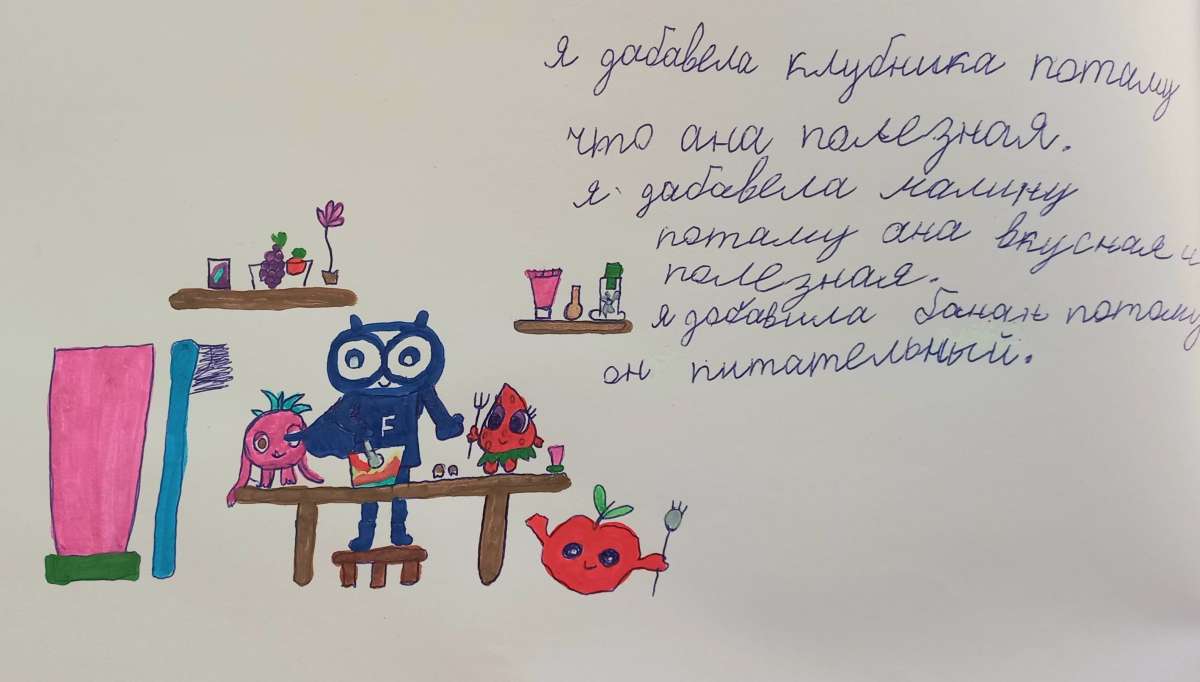 я дабавела клубника потаму
что ана полезная.
я дабавела малину
потаму ана вкусная и
полезная.
я добавила банан потому
он питательный.
F